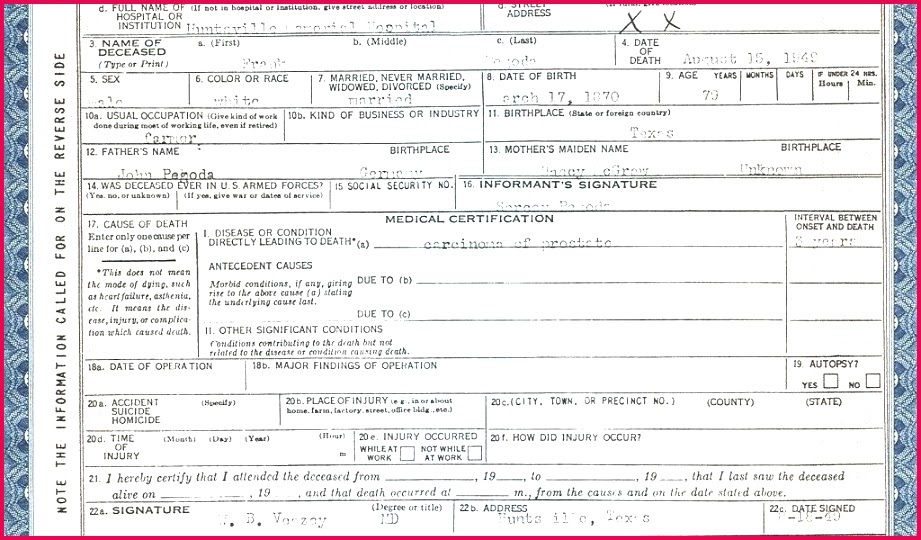 d. FULL NAME OF (If not in hospital or institution, give street address or location)
HOSPITAL OR
INSTITUTION Huntsville Hospital
ADDRESS
X X
3. NAME OF DECEASED (Type or Print)
a. (First) b. (Middle) c. (Last)
Frank Pegoda
4. DATE OF DEATH August 15, 1949
5. SEX
male
6. COLOR OR RACE
white
7. MARRIED, NEVER MARRIED, WIDOWED, DIVORCED (Specify)
married
8. DATE OF BIRTH
arch 17, 1870
9. AGE YEARS MONTHS DAYS IF UNDER 24 HRS. Hours Min.
79
10a. USUAL OCCUPATION (Give kind of work done during most of working life, even if retired)
farmer
10b. KIND OF BUSINESS OR INDUSTRY
11. BIRTHPLACE (State or foreign country)
Texas
12. FATHER'S NAME BIRTHPLACE
John Pegoda Germany
13. MOTHER'S MAIDEN NAME BIRTHPLACE
Nancy McGrew Unknown
14. WAS DECEASED EVER IN U.S. ARMED FORCES?
(Yes, no, or unknown) (If yes, give war or dates of service)
15 SOCIAL SECURITY NO.
16. INFORMANT'S SIGNATURE
Pegoda
MEDICAL CERTIFICATION
INTERVAL BETWEEN ONSET AND DEATH
17. CAUSE OF DEATH
Enter only one cause per
line for (a), (b), and (c)
*This does not mean
the mode of dying, such
as heart failure, asthenia,
etc. It means the dis-
ease, injury, or complica-
tion which caused death.
I. DISEASE OR CONDITION
DIRECTLY LEADING TO DEATH*(a) carcinoma of prostate
years
ANTECEDENT CAUSES
Morbid conditions, if any, giving
rise to the above cause (a) stating
the underlying cause last.
DUE TO (b)
DUE TO (c)
II. OTHER SIGNIFICANT CONDITIONS
Conditions contributing to the death but not
related to the disease or condition causing death.
18a. DATE OF OPERATION
18b. MAJOR FINDINGS OF OPERATION
19. AUTOPSY?
YES NO
20a. ACCIDENT (Specify)
SUICIDE
HOMICIDE
20b. PLACE OF INJURY (e.g., in or about
home, farm, factory, street, office bldg., etc.)
20c. (CITY, TOWN, OR PRECINCT NO.) (COUNTY) (STATE)
20d. TIME (Month) (Day) (Year) (Hour)
OF
INJURY m
20e. INJURY OCCURRED
WHILE AT WORK NOT WHILE AT WORK
20f. HOW DID INJURY OCCUR?
21. I hereby certify that I attended the deceased from , 19 , to , 19 , that I last saw the deceased
alive on , 19 , and that death occurred at m., from the causes and on the date stated above.
22a. SIGNATURE (Degree or title)
B. Veazey MD
22b. ADDRESS
Huntsville, Texas
22c. DATE SIGNED
-18-49
NOTE THE INFORMATION CALLED FOR ON THE REVERSE SIDE